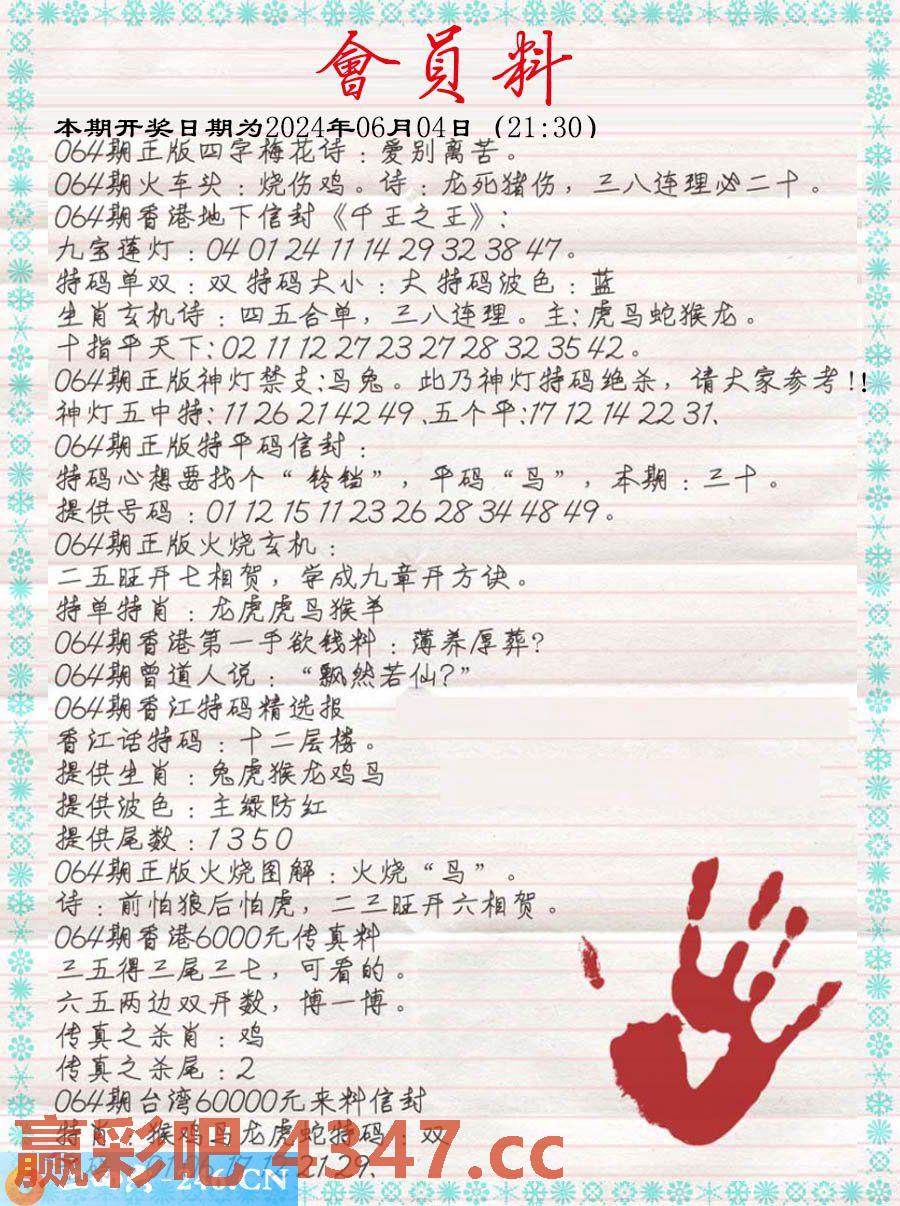 會員料
本期开奖日期为2024年06月04日（21:30）
064期正版四字梅花诗：爱别离苦。
064期火车头：烧伤鸡。诗：龙死猪伤，三八连理必二十。
064期香港地下信封《千王之王》：
九宝莲灯：04 01 24 11 14 29 32 38 47。
特码单双：双 特码大小：大 特码波色：蓝
生肖玄机诗：四五合单，三八连理。主：虎马蛇猴龙。
十指平天下：02 11 12 27 23 27 28 32 35 42。
064期正版神灯禁支：马兔。此乃神灯特码绝杀，请大家参考!!
神灯五中特：11 26 21 42 49、五个平：17 12 14 22 31、
064期正版特平码信封：
特码心想要找个“铃铛”，平码“马”，本期：三十。
提供号码：01 12 15 11 23 26 28 34 48 49。
064期正版火烧玄机：
二五旺开七相贺，学成九章开方诀。
特单特肖：龙虎虎马猴羊
064期香港第一手欲钱料：薄养厚葬？
064期曾道人说：“飘然若仙？”
064期香江特码精选报
香江话特码：十二层楼。
提供生肖：兔虎猴龙鸡马
提供波色：主绿防红
提供尾数：1 3 5 0
064期正版火烧图解：火烧“马”。
诗：前怕狼后怕虎，二三旺开六相贺。
064期香港6000元传真料
三五得三尾三七，可看的。
六五两边双开数，博一博。
传真之杀肖：鸡
传真之杀尾：2
064期台湾60000元来料信封
特肖：猴鸡马龙虎蛇特码：双
赢彩吧.4347.cc
21 29、
246.CN